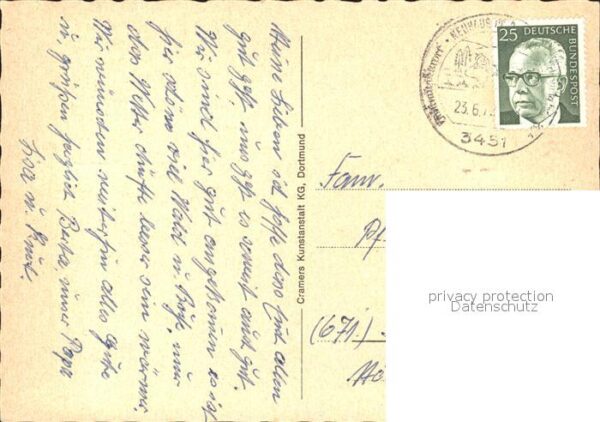 Meine Lieben ich hoffe dass Euch allen
gut geht, uns geht es soweit auch gut.
Wir sind hier gut angekommen es ist
hier schön viel Wald u. Ruhe, nur
das Wetter dürfte besser sein wärmer.
Wir wünschen weiterhin alles Gute
u. grüßen herzlich Berta, unser Papa
Lisa u.
Cramers Kunstanstalt KG, Dortmund
25 DEUTSCHE BUNDESPOST
NEUHAUS
23.6.7
3451
Fam.
(671)
privacy protection
Datenschutz